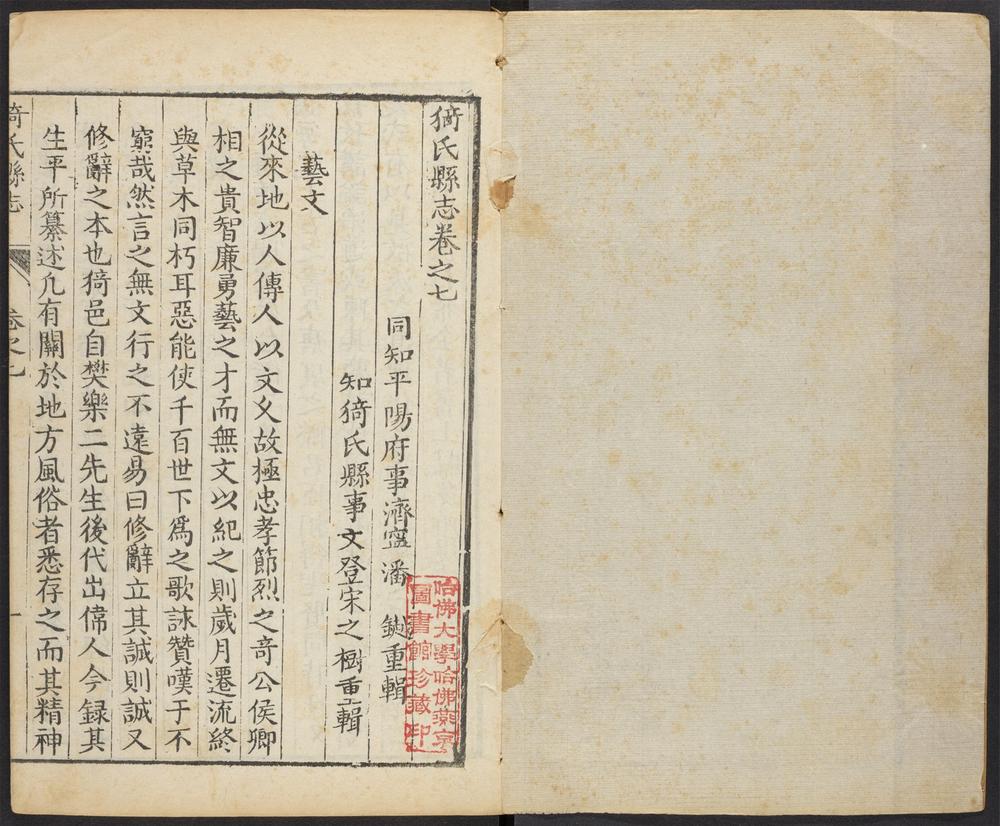 猗氏縣志卷之七
同知平陽府事濟寧潘 鉞重輯
知猗氏縣事文登宋之樹重輯
藝文
從來地以人傳人以文文故極忠孝節烈之奇公侯卿
相之貴智廉勇藝之才而無文以紀之則歲月遷流終
與草木同朽耳惡能使千百世下爲之歌詠贊嘆于不
窮哉然言之無文行之不遠易曰修辭立其誠則誠又
修辭之本也猗邑自樊樂二先生後代出偉人今録其
生平所纂述凢有關於地方風俗者悉存之而其精神
猗氏縣志 卷之七 一
哈佛大學哈佛燕京
圖書館珍藏印